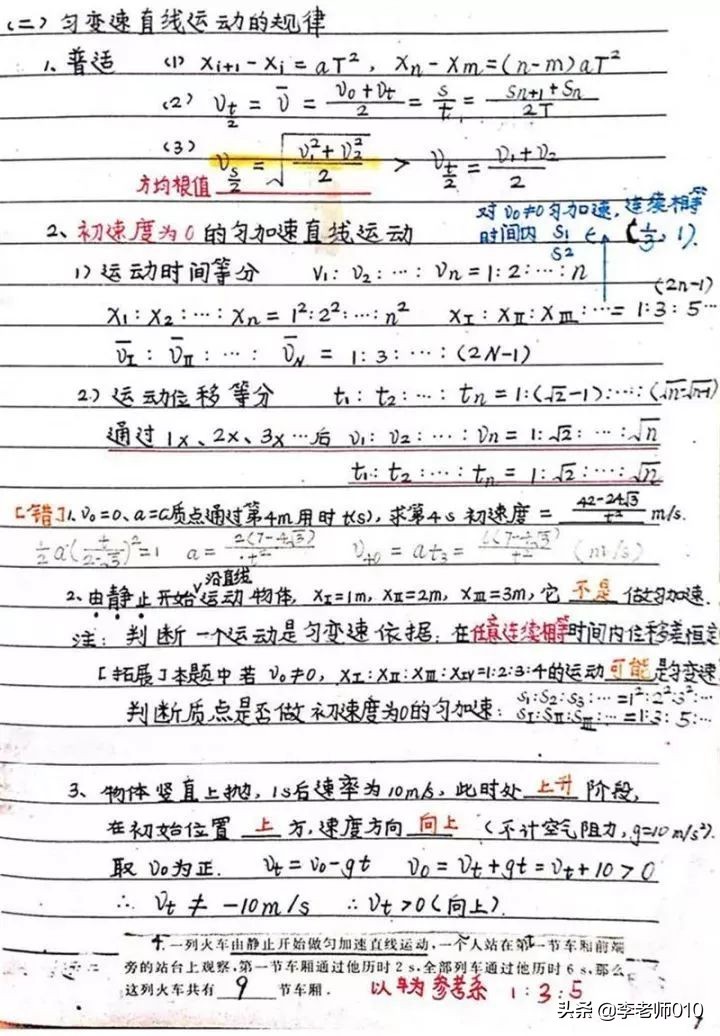 (二) 匀变速直线运动的规律
1、普适 (1) xᵢ₊₁-xᵢ=aT², xₙ-xₘ=(n-m)aT²
(2) v_{t/2} = v̄ = (v₀+vt)/2 = s/t = (Sn+1+Sn)/2T
(3) v_{s/2} = √((v₁²+v₂²)/2) > v_{t/2} = (v₁+v₂)/2
方均根值
对v₀≠0匀加速,连续相等
时间内 S₁/S₂ ∈ (1/3, 1).
2、初速度为0的匀加速直线运动
1) 运动时间等分 v₁:v₂:…:vn=1:2:…:n
(2n-1)
x₁:x₂:…:xn=1²:2²:…:n² xⅠ:xⅡ:xⅢ:…=1:3:5…
v̄Ⅰ:v̄Ⅱ:…:v̄N=1:3:…:(2N-1)
2) 运动位移等分 t₁:t₂:…:tn=1:(√2-1):…:(√n-√n-1)
通过1x、2x、3x…后 v₁:v₂:…:vn=1:√2:…:√n
t₁:t₂:…:tn=1:√2:…:√n
[错]1.v₀=0、a=C质点通过第4m用时t(s),求第4s初速度= (42-24√3)/t² m/s.
½a(t/(2-√3))²=1 a= 2(7-4√3)/t² v40=at₃= 6(7-4√3)/t² (m/s)
2、由静止开始沿直线运动物体, xⅠ=1m, xⅡ=2m, xⅢ=3m,它 不是 做匀加速.
注: 判断一个运动是匀变速依据:在任意连续相等时间内位移差恒定
[拓展]本题中若v₀≠0, xⅠ:xⅡ:xⅢ:xⅣ=1:2:3:4的运动可能是匀变速
判断质点是否做初速度为0的匀加速: S₁:S₂:S₃:…=1²:2²:3²:…
SⅠ:SⅡ:SⅢ:…=1:3:5:…
3、物体竖直上抛,1s后速率为10m/s,此时处 上升 阶段,
在初始位置 上 方,速度方向 向上 (不计空气阻力,g=10m/s²).
取v₀为正. vt=v₀-gt v₀=vt+gt=vt+10>0
∴ vt≠-10m/s ∴vt>0(向上).
4.一列火车由静止开始做匀加速直线运动,一个人站在第一节车厢前端
旁的站台上观察,第一节车厢通过他历时2 s,全部列车通过他历时6 s,那么
这列火车共有 9 节车厢. 以车为参考系 1:3:5
头条 @李老师010